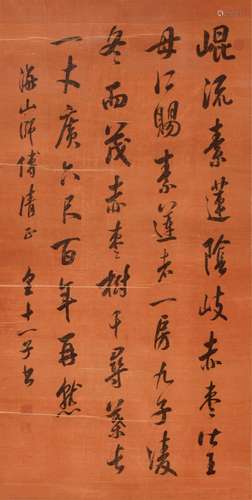 崐流素蓮陰岐赤棗從王
母仁賜素蓮者一房九子凌
冬而茂赤棗樹千尋蘂長
一丈廣六尺百年再然
海山師傅清正
皇十一子書